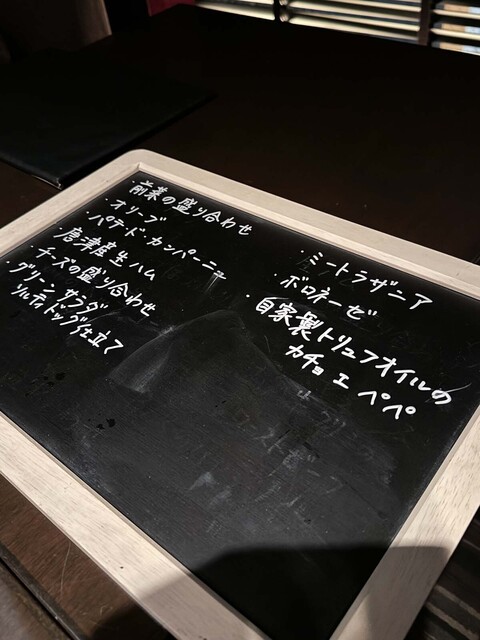 ・前菜の盛り合わせ
・オリーブ
・パテ・ド・カンパーニュ
・唐津産生ハム
・チーズの盛り合わせ
・グリーンサラダ
ソルティドッグ仕立て
・ミートラザニア
・ボロネーゼ
・自家製トリュフオイルの
カチョエペペ